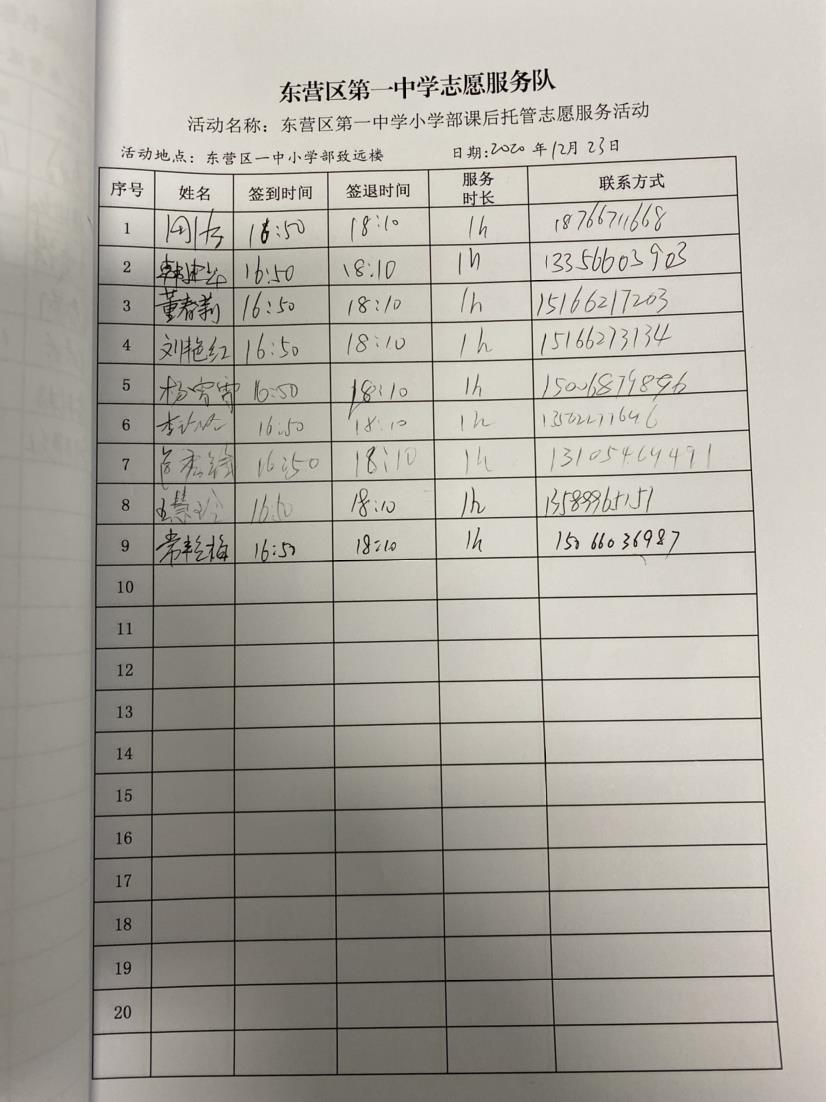 东营区第一中学志愿服务队
活动名称：东营区第一中学小学部课后托管志愿服务活动
活动地点：东营区一中小学部致远楼 日期:2020年12月23日
序号 姓名 签到时间 签退时间 服务时长 联系方式
1 16:50 18:10 1h 18766711668
2 16:50 18:10 1h 13356603903
3 董春莉 16:50 18:10 1h 15166217203
4 刘艳红 16:50 18:10 1h 15166273134
5 杨雪雪 16:50 18:10 1h 15006879896
6 16:50 18:10 1h
7 16:50 18:10 1h 13105464491
8 王慧玲 16:50 18:10 1h
9 常艳梅 16:50 18:10 1h 15066036987
10
11
12
13
14
15
16
17
18
19
20